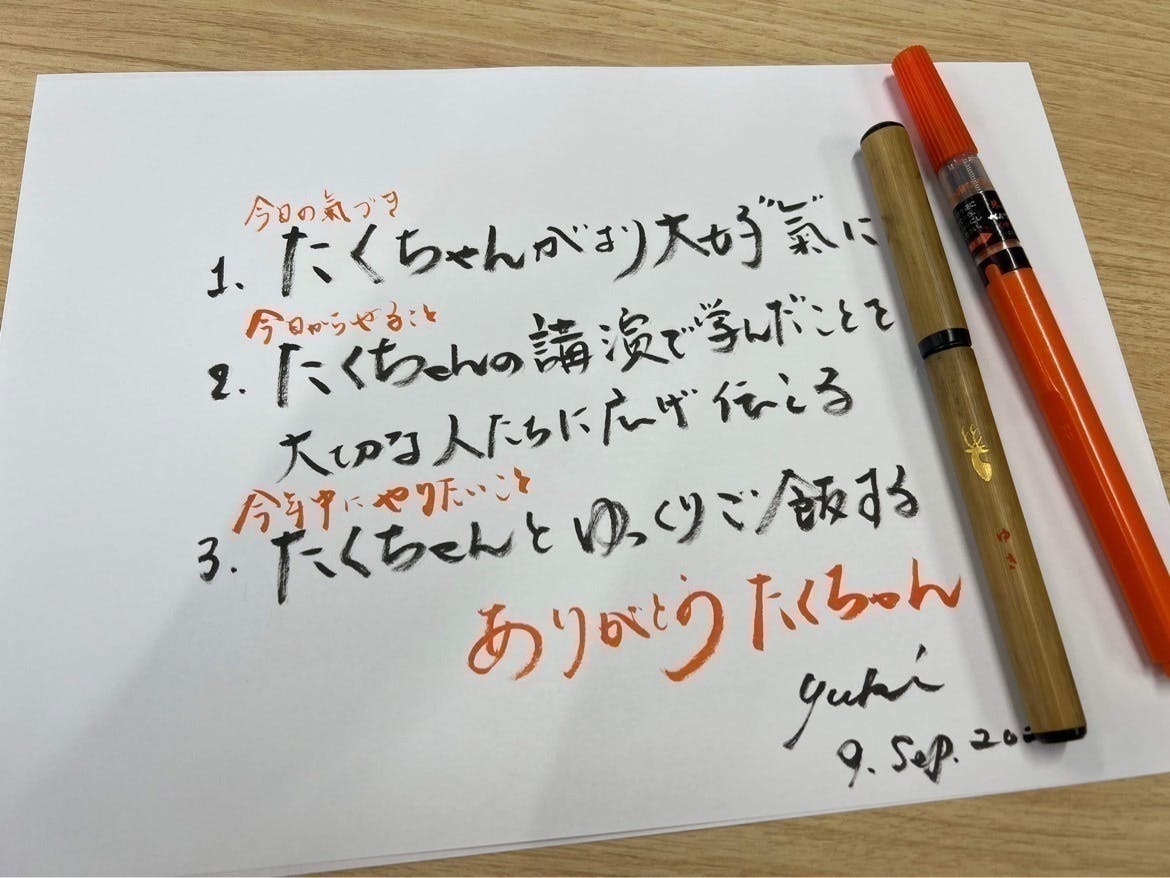 今日の氣づき
1. たくちゃんがより大好氣に
今日からやること
2. たくちゃんの講演で学んだことを
大切な人たちに広げ伝える
今年中にやりたいこと
3. たくちゃんとゆっくりご飯する
ありがとう たくちゃん
yuki
9. Sep. 20
ゆき